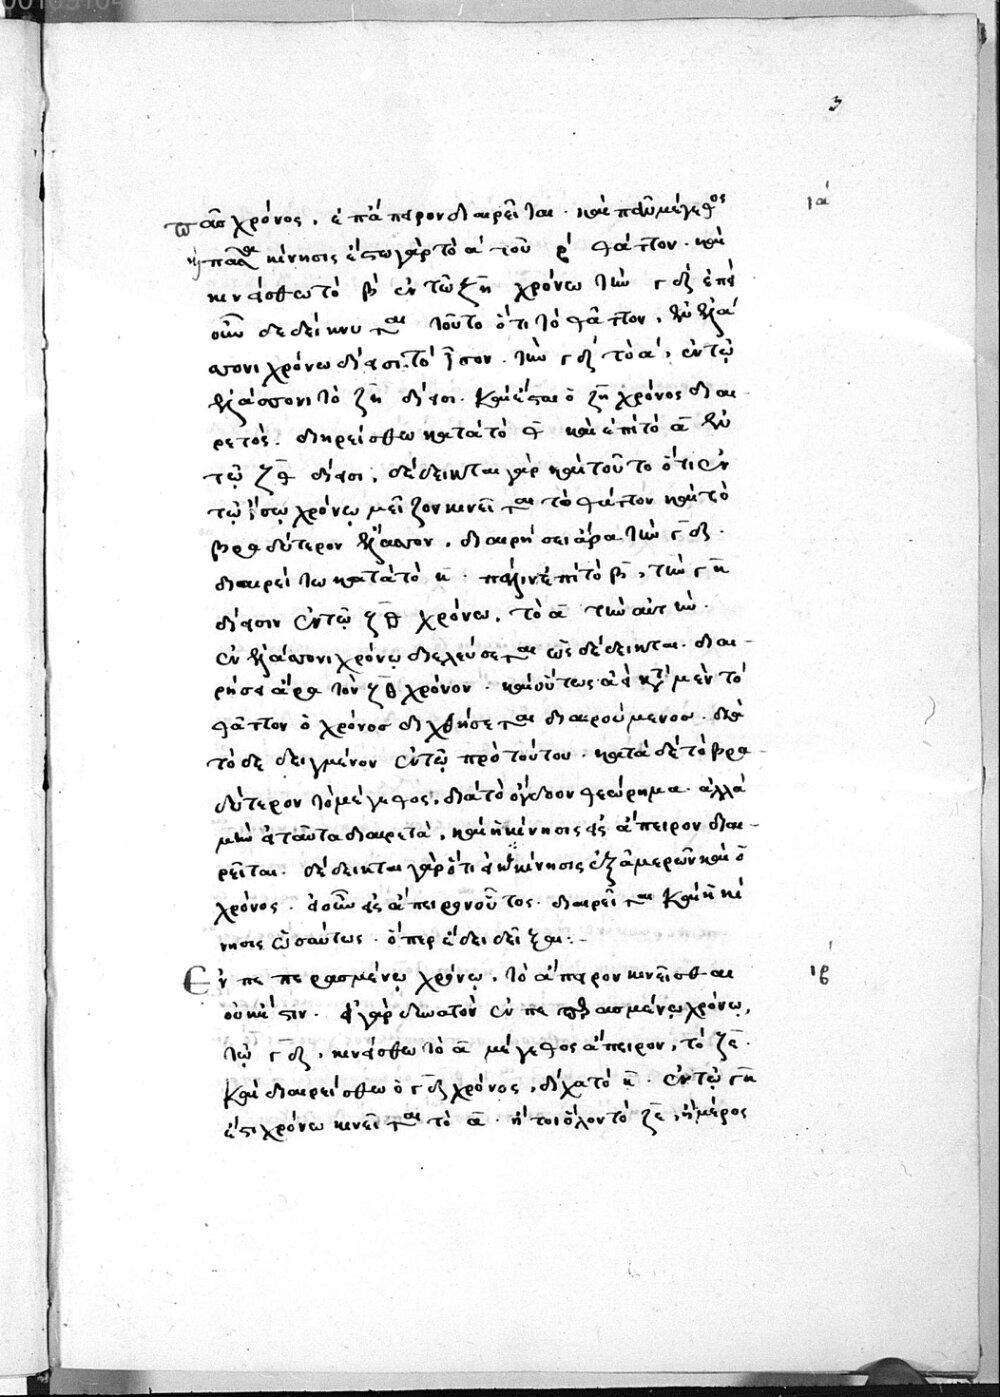 3
πᾶς χρόνος, ἐπ' ἄπειρον διαιρεῖται. καὶ πᾶν μέγεθος ια΄
καὶ πᾶσα κίνησις ἔστω γὰρ τὸ α΄ τοῦ β΄ θᾶττον. καὶ
κινείσθω τὸ β΄ ἐν τῶ ζη χρόνω τὴν γδ ἐπεὶ
οὖν δεδείκνυται τοῦτο ὅτι τὸ θᾶττον, ἐν ἐλά
σσονι χρόνω δίεισι τὸ ἴσον. τὴν γδ τὸ α΄, ἐν τῶ
ἐλάσσονι τὸ ζη δίεισι. καὶ ἔσται ὁ ζη χρόνος διαι-
ρετός. διηρείσθω κατὰ τὸ θ καὶ ἐπὶ τὸ α ἐν
τῷ ζθ δίεισι, δέδεικται γὰρ καὶ τοῦτο ὅτι ἐν
τῷ ἴσῳ χρόνῳ μεῖζον κινεῖται τὸ θᾶττον καὶ τὸ
βραδύτερον ἔλασσον, διαιρήσει ἄρα τὴν γδ.
διαιρείτω κατὰ τὸ κ. πάλιν ἐπὶ τὸ β, τὴν γκ
δίεισιν ἐν τῷ ζθ χρόνω, τὸ α τὴν αὐτὴν.
ἐν ἐλάσσονι χρόνῳ διελεύσεται ὡς δέδεικται. διαι-
ρήσει ἄρα τὸν ζθ χρόνον. καὶ οὕτως ἀεὶ κατὰ μὲν τὸ
θᾶττον ὁ χρόνος διχθήσεται διαιρούμενος. διὰ
τὸ δεδειγμένον ἐν τῶ πρὸ τούτου. κατὰ δὲ τὸ βρα-
δύτερον τὸ μέγεθος, διὰ τὸ ὄγδοον θεώρημα. ἀλλὰ
μὴν εἰ ταῦτα διαιρετὰ, καὶ ἡ κίνησις εἰς ἄπειρον διαι-
ρεῖται. δέδεικται γὰρ ὅτι εἰ ἡ κίνησις ἐξ ἀμερῶν καὶ ὁ
χρόνος. εἰ οὖν εἰς ἄπειρον οὗτος. διαιρεῖται καὶ ἡ κί
νησις ὡσαύτως. ὅπερ ἔδει δεῖξαι:-
Ἐν πεπερασμένῳ χρόνῳ, τὸ ἄπειρον κινεῖσθαι ιβ΄
οὐκ ἔστιν. εἰ γὰρ δυνατὸν ἐν πεπερασμένω χρόνω,
τῷ γδ, κινείσθω τὸ α μέγεθος ἄπειρον, τὸ ζε.
καὶ διαιρείσθω ὁ γδ χρόνος, δίχα τὸ κ. ἐν τῷ γκ
ἔτι χρόνω κινεῖται τὸ α. ἤτοι ὅλον τὸ ζε, ἢ μέρος